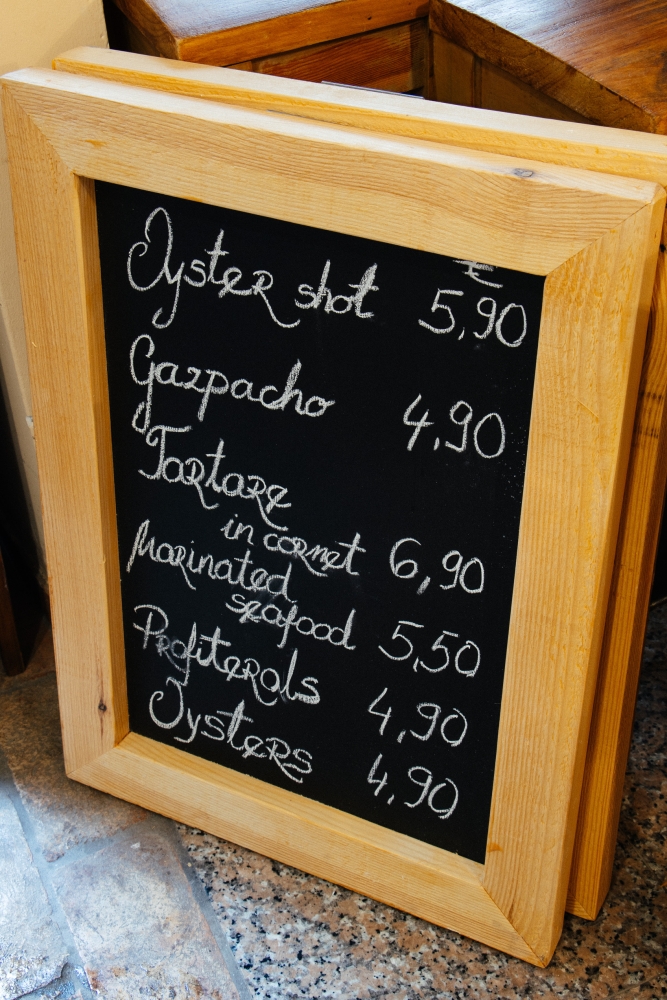 €
Oyster shot 5,90
Gazpacho 4,90
Tartare
in cornet 6,90
Marinated
seafood 5,50
Profiterols 4,90
Oysters 4,90